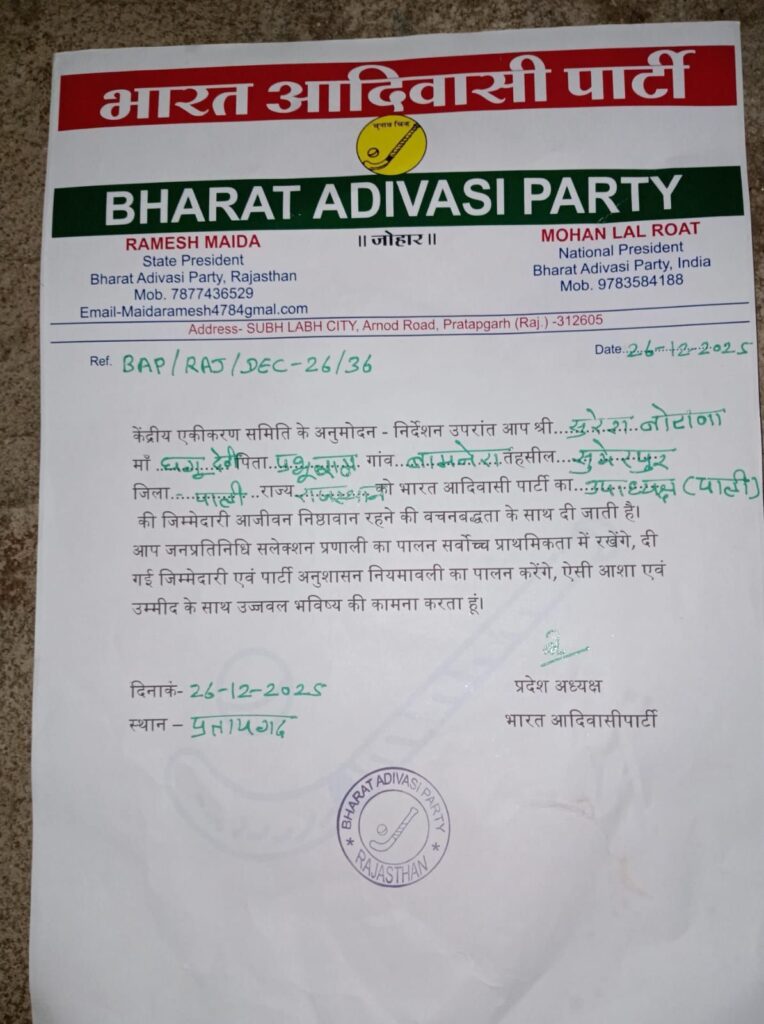 भारत आदिवासी पार्टी
चुनाव चिन्ह
BHARAT ADIVASI PARTY
RAMESH MAIDA
State President
Bharat Adivasi Party, Rajasthan
Mob. 7877436529
Email-Maidaramesh4784gmal.com
॥ जोहार॥
MOHAN LAL ROAT
National President
Bharat Adivasi Party, India
Mob. 9783584188
Address- SUBH LABH CITY, Arnod Road, Pratapgarh (Raj.) -312605
Ref. BAP/RAJ/DEC-26/36
Date..26-12-2025
केंद्रीय एकीकरण समिति के अनुमोदन - निर्देशन उपरांत आप श्री...सुरेश जोटाणा
माँ देवी पिता गांव..बामनेरा तहसील...सुमेरपुर
जिला....पाली..राज्य राजस्थान को भारत आदिवासी पार्टी का...उपाध्यक्ष (पाली)
की जिम्मेदारी आजीवन निष्ठावान रहने की वचनबद्धता के साथ दी जाती है।
आप जनप्रतिनिधि सलेक्शन प्रणाली का पालन सर्वोच्च प्राथमिकता में रखेंगे, दी
गई जिम्मेदारी एवं पार्टी अनुशासन नियमावली का पालन करेंगे, ऐसी आशा एवं
उम्मीद के साथ उज्जवल भविष्य की कामना करता हूं।
दिनाकं- 26-12-2025
स्थान – प्रतापगढ
प्रदेश अध्यक्ष
भारत आदिवासीपार्टी
BHARAT ADIVASI PARTY
* RAJASTHAN *